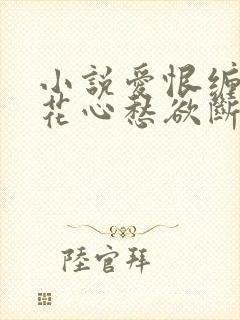 小說愛恨纏
花心愁欲斷
陸官拜